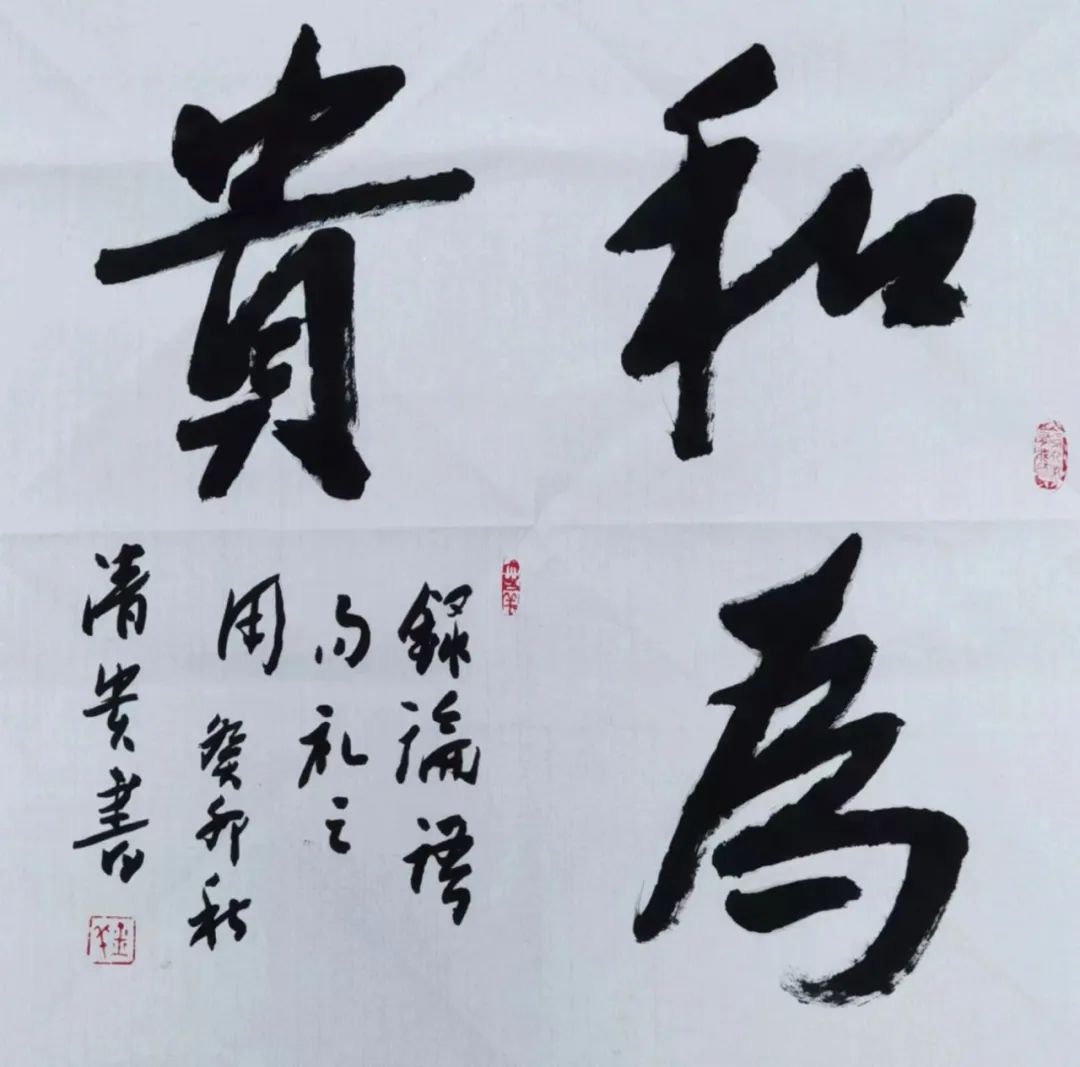 和為
貴
錄論語
句礼之
用癸卯秋
清貴書